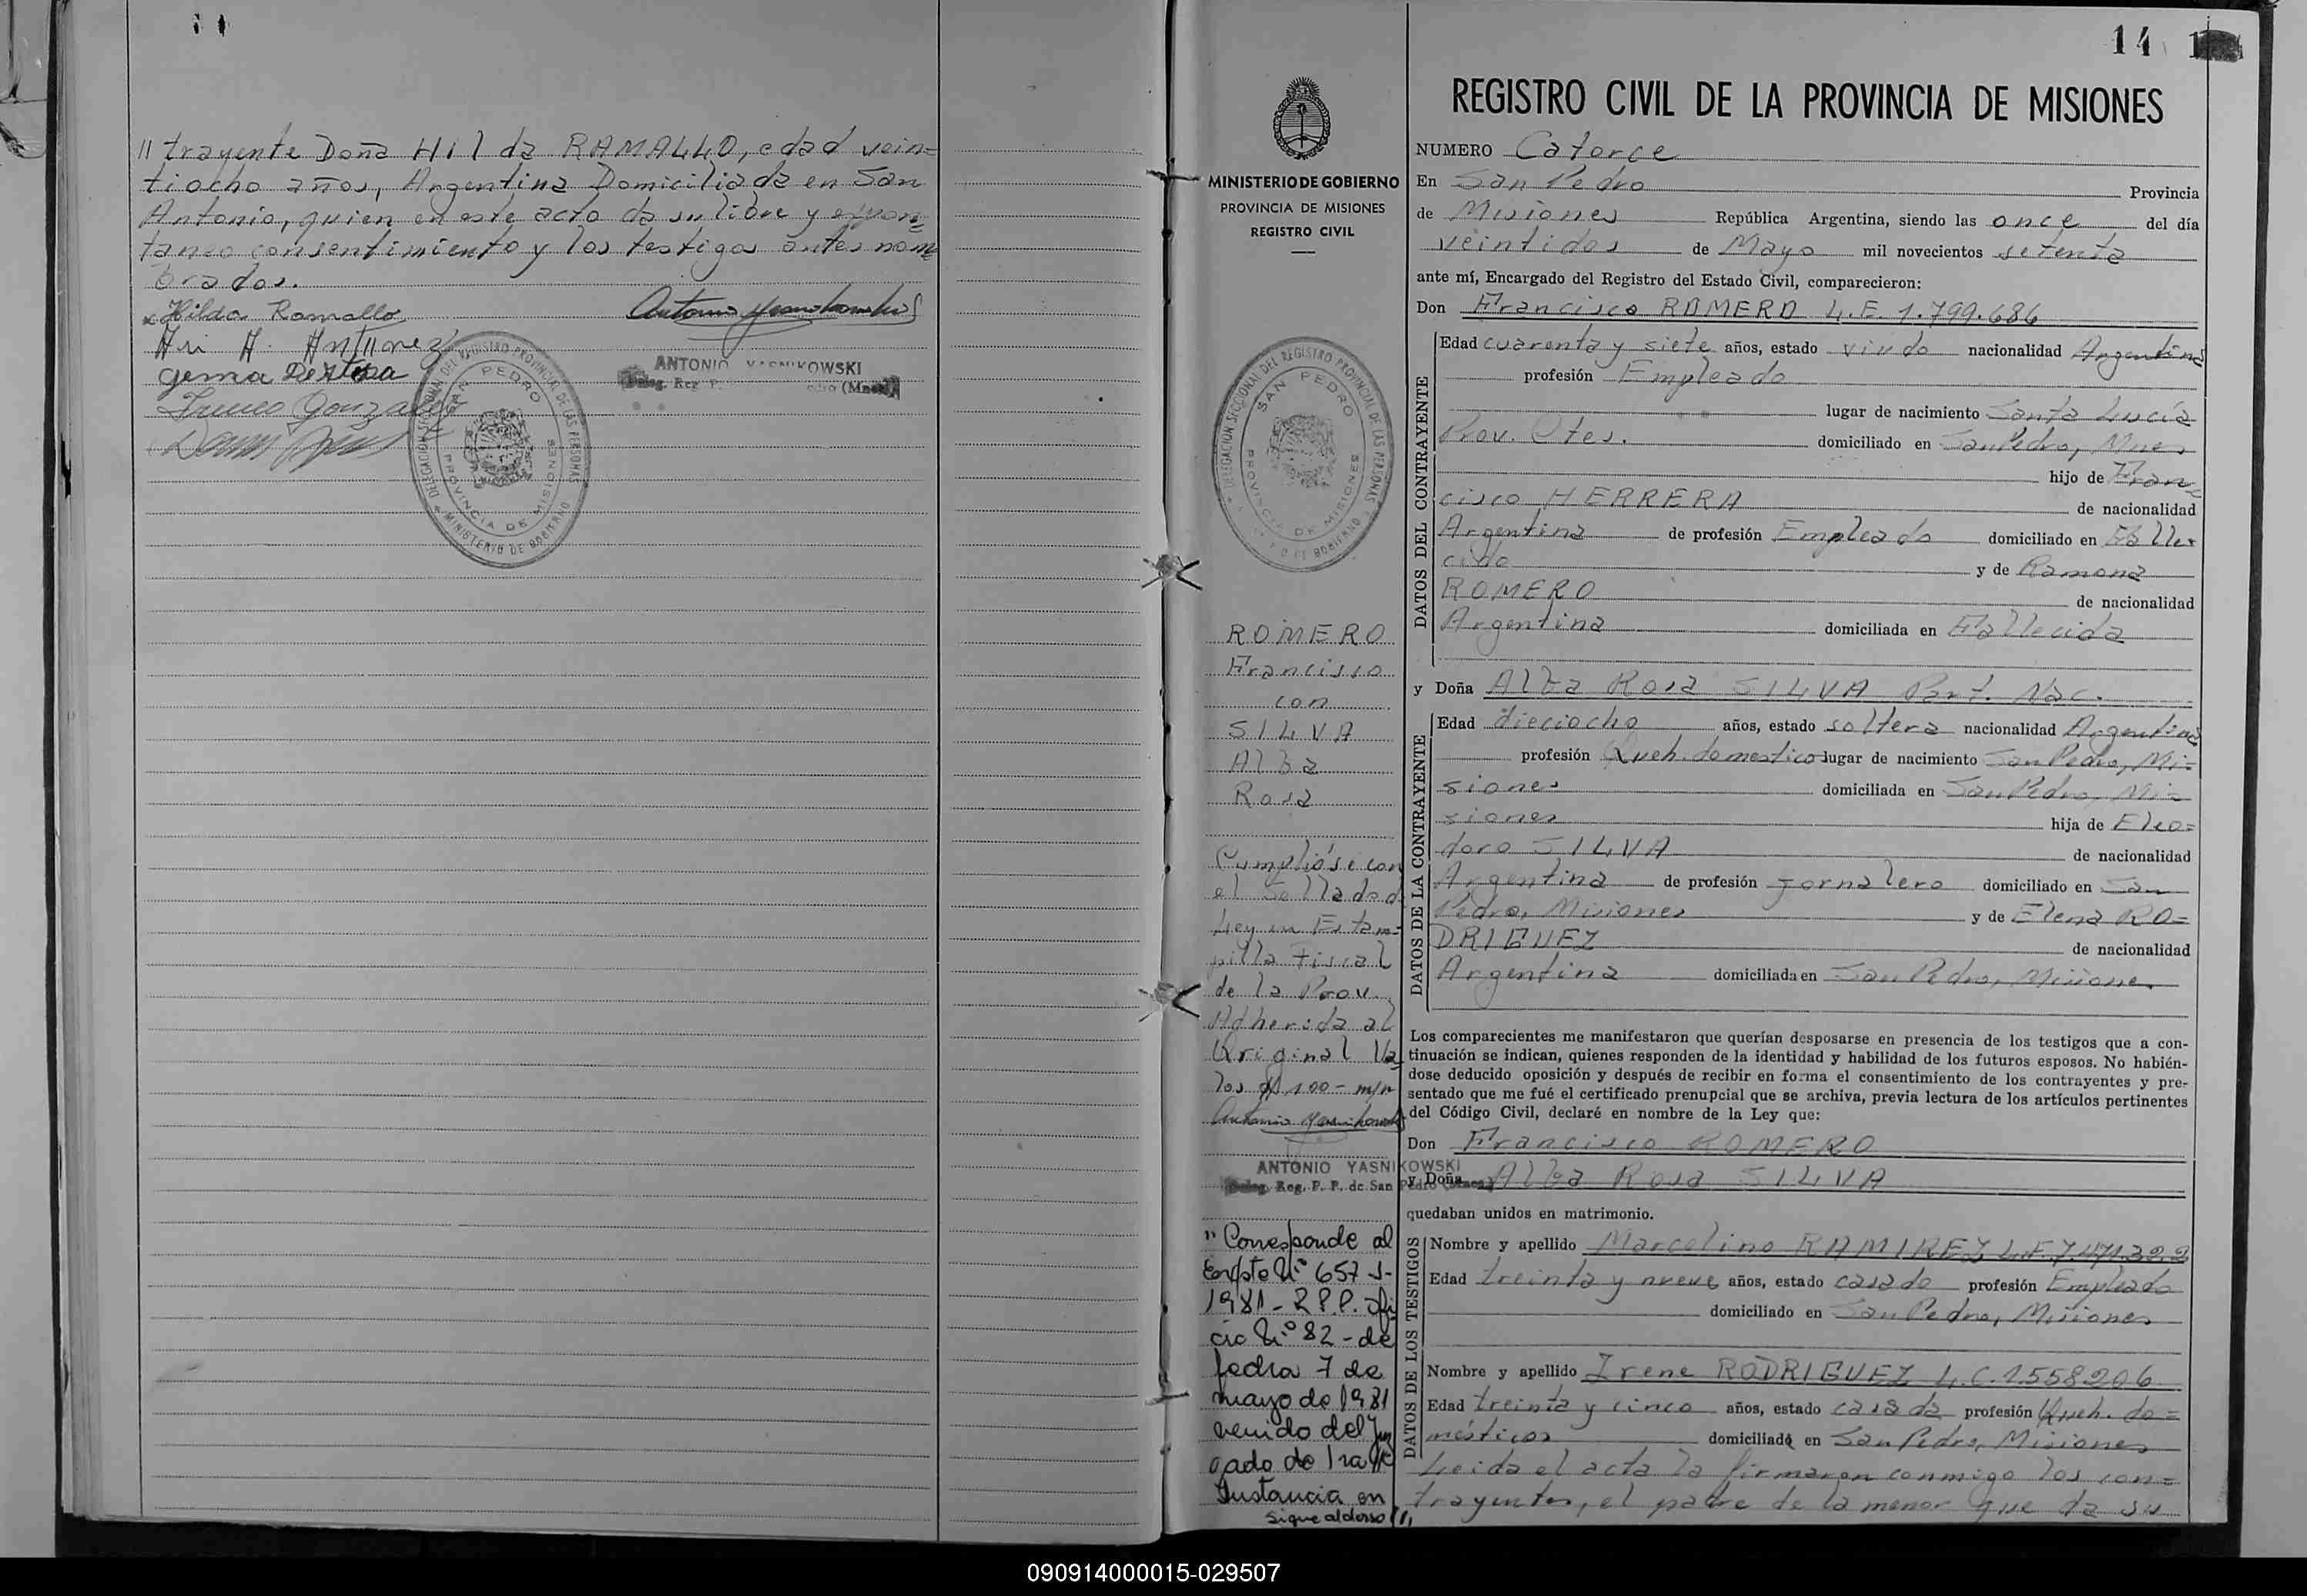 // trayente Doña Hilda RAMALLO, edad vein=
tiocho años, Argentina Domiciliada en San
Antonio, quien en este acto da su libre y espon=
taneo consentimiento y los testigos antes nom
brados.
Hilda Ramallo
Antonio Yasnikowski
A. Antunez
ANTONIO YASNIKOWSKI
Gonzalez
DELEGACION SECCIONAL DEL REGISTRO PROVINCIAL DE LAS PERSONAS
SAN PEDRO
PROVINCIA DE MISIONES
MINISTERIO DE GOBIERNO
14
MINISTERIO DE GOBIERNO
PROVINCIA DE MISIONES
REGISTRO CIVIL
DELEGACION SECCIONAL DEL REGISTRO PROVINCIAL DE LAS PERSONAS
SAN PEDRO
PROVINCIA DE MISIONES
ROMERO
Francisco
con
SILVA
Alba
Rosa
Cumplióse con
el Sellado d
Ley en Estam=
pilla Fiscal
de la Prov.
Adherida al
Original Va
los $ 100- m/n
Antonio Yasnikowski
ANTONIO YASNIKOWSKI
Deleg. Reg. P. P. de San Pedro
" Corresponde al
Expte Nº 657-J-
1981 - R.P.P. Ofi
cio Nº 82 - de
fecha 7 de
mayo de 1981
venido del Juz
gado de 1ra
Instancia en
Sigue al dorso //,
REGISTRO CIVIL DE LA PROVINCIA DE MISIONES
NUMERO Catorce
En San Pedro Provincia
de Misiones República Argentina, siendo las once del día
veintidos de Mayo mil novecientos setenta
ante mí, Encargado del Registro del Estado Civil, comparecieron:
Don Francisco ROMERO L.E. 1.799.686
DATOS DEL CONTRAYENTE
Edad cuarenta y siete años, estado viudo nacionalidad Argentina
profesión Empleado
lugar de nacimiento Santa Lucía
Prov. Ctes. domiciliado en San Pedro, Mnes
hijo de Fran=
cisco HERRERA de nacionalidad
Argentina de profesión Empleado domiciliado en Falle=
cido y de Ramona
ROMERO de nacionalidad
Argentina domiciliada en Fallecida
y Doña Alba Rosa SILVA Part. Nac.
DATOS DE LA CONTRAYENTE
Edad dieciocho años, estado soltera nacionalidad Argentina
profesión Queh. domestico lugar de nacimiento San Pedro, Mi=
siones domiciliada en San Pedro, Mi=
siones hija de Eleo=
doro SILVA de nacionalidad
Argentina de profesión Jornalero domiciliado en San
Pedro, Misiones y de Elena RO=
DRIGUEZ de nacionalidad
Argentina domiciliada en San Pedro, Misiones
Los comparecientes me manifestaron que querían desposarse en presencia de los testigos que a con-
tinuación se indican, quienes responden de la identidad y habilidad de los futuros esposos. No habién-
dose deducido oposición y después de recibir en forma el consentimiento de los contrayentes y pre-
sentado que me fué el certificado prenupcial que se archiva, previa lectura de los artículos pertinentes
del Código Civil, declaré en nombre de la Ley que:
Don Francisco ROMERO
y Doña Alba Rosa SILVA
quedaban unidos en matrimonio.
DATOS DE LOS TESTIGOS
Nombre y apellido Marcelino RAMIREZ L.E. 7.471.322
Edad treinta y nueve años, estado casado profesión Empleado
domiciliado en San Pedro, Misiones
Nombre y apellido Irene RODRIGUEZ L.C. 1.558206
Edad treinta y cinco años, estado casada profesión Queh. do=
mésticos domiciliada en San Pedro, Misiones
Leida el acta la firmaron conmigo los con=
trayentes, el padre de la menor que da su
090914000015-029507